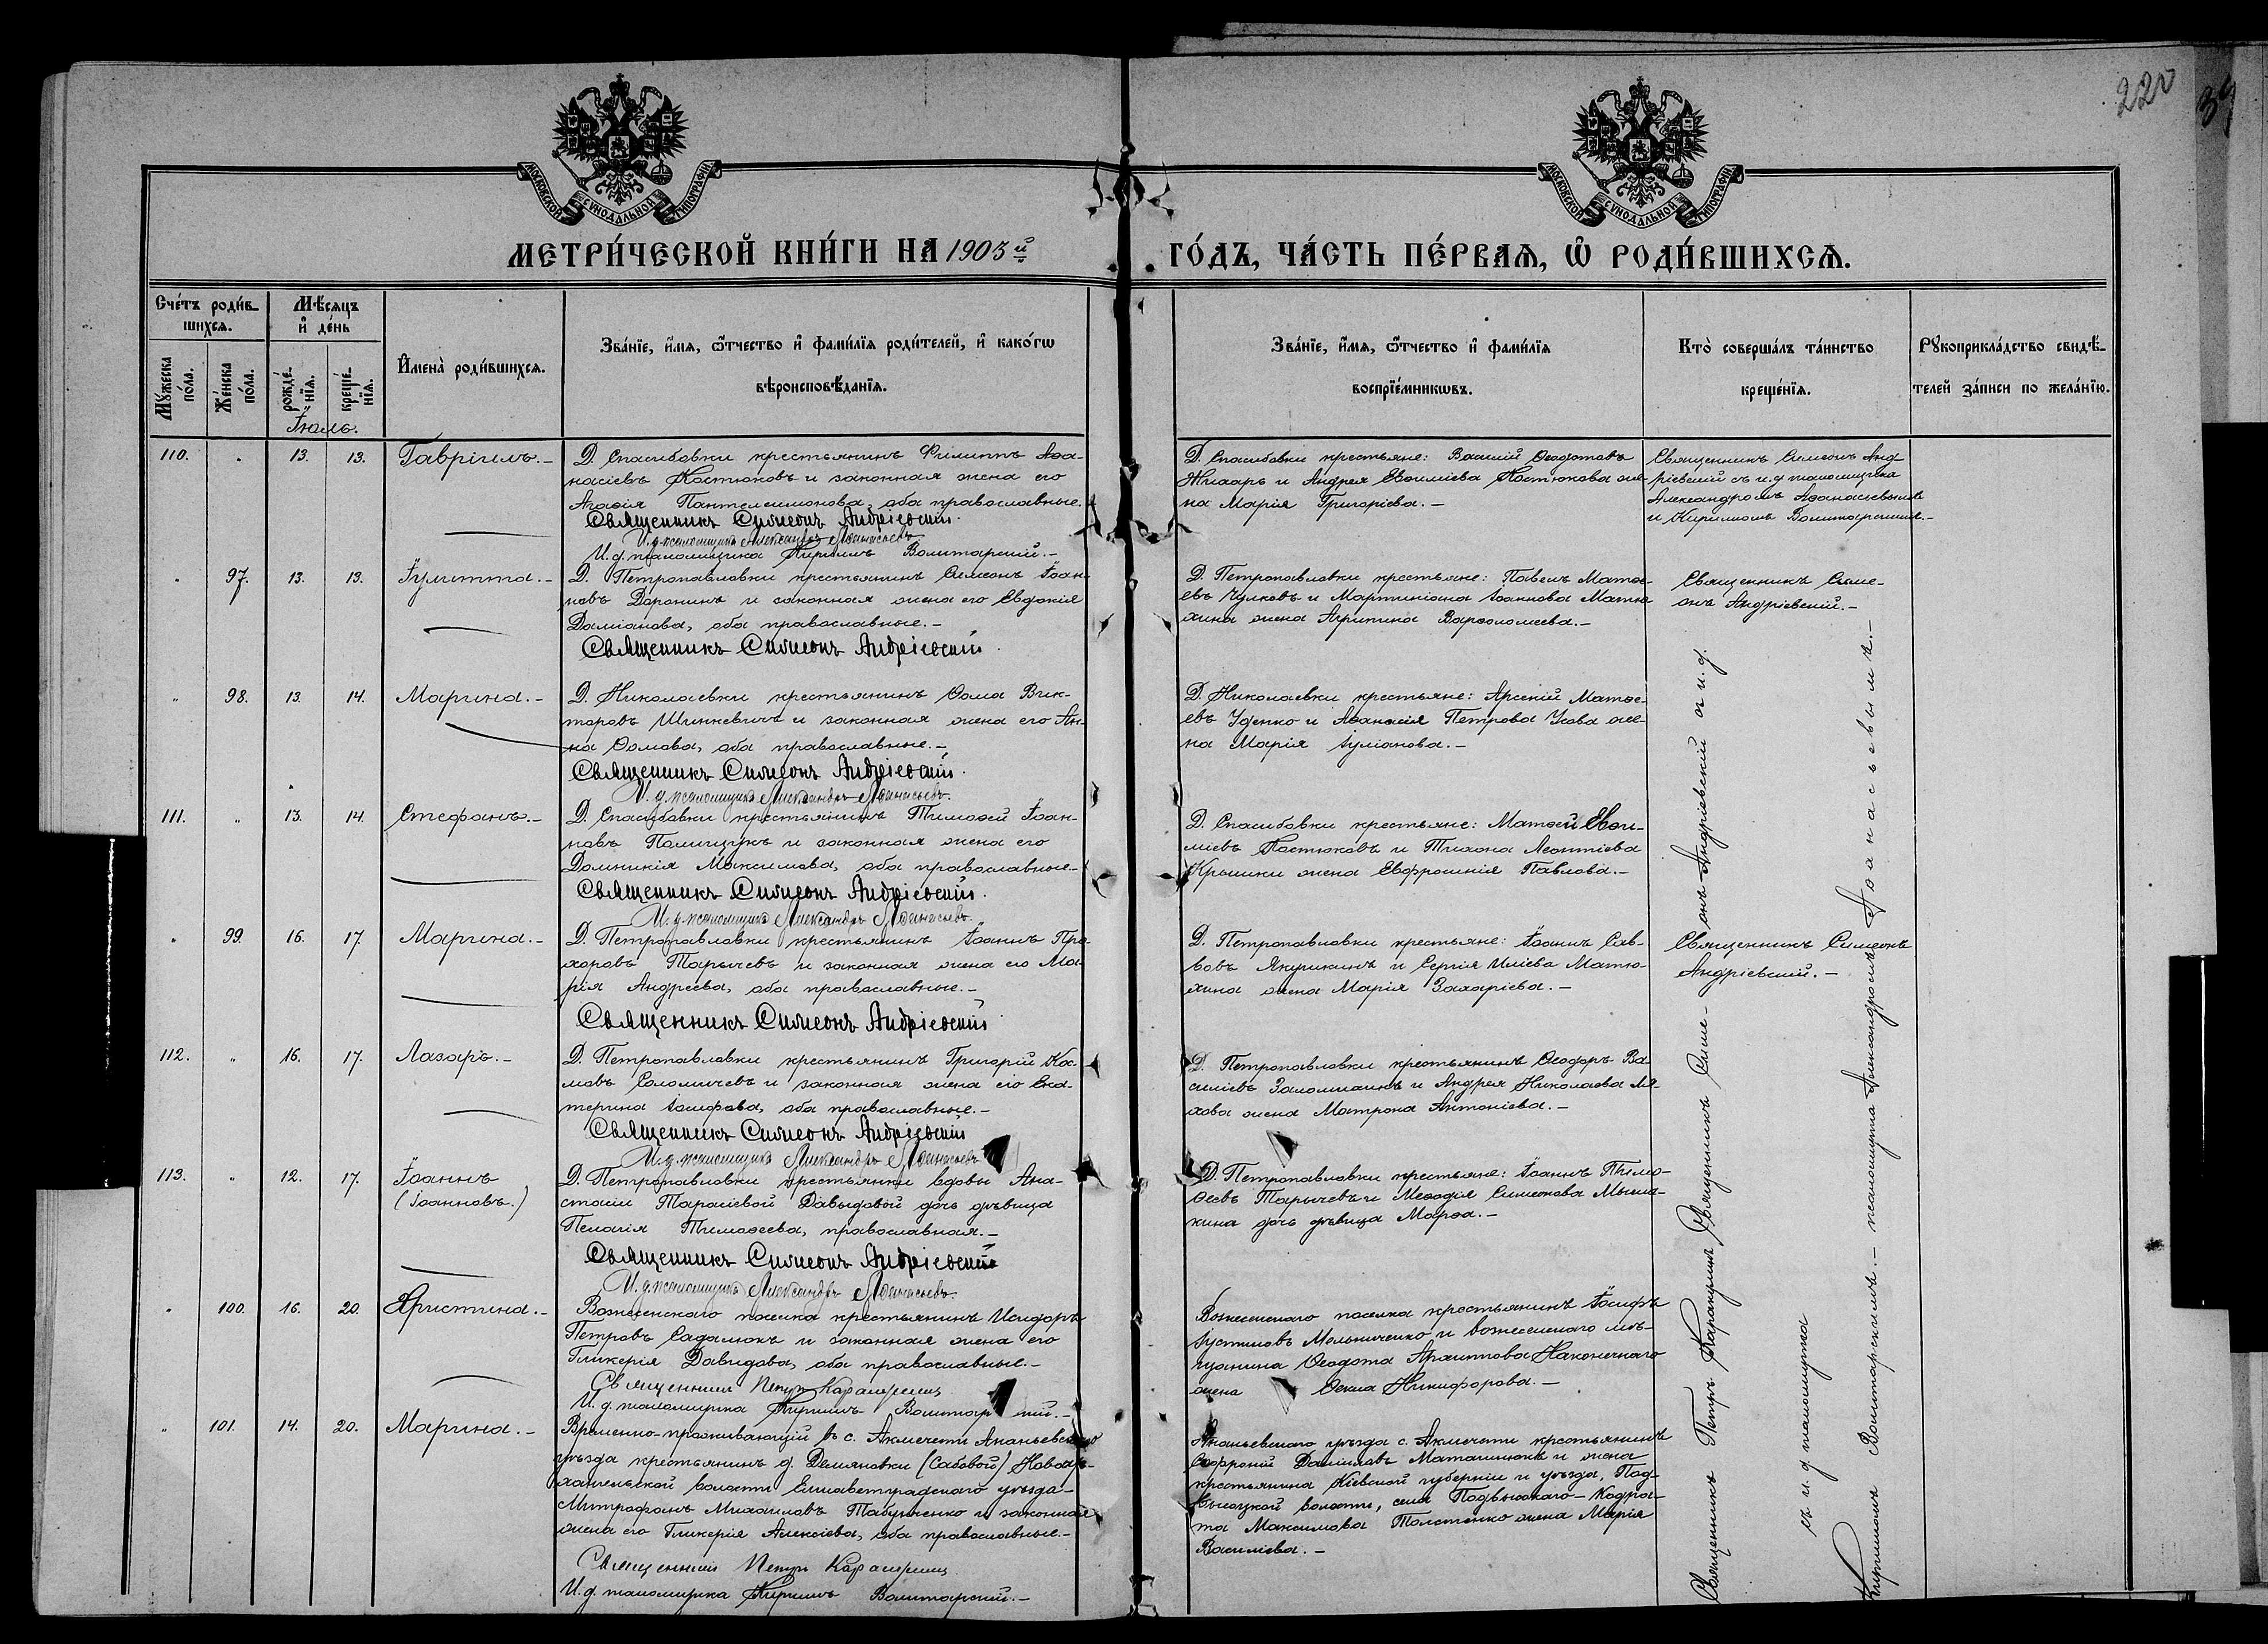 220
39
МОСКОВСКОЙ СУНОДАЛЬНОЙ ТИПОГРАФІИ
МОСКОВСКОЙ СУНОДАЛЬНОЙ ТИПОГРАФІИ
МЕТРИ́ЧЕСКОЙ КНИ́ГИ НА 1905й
ГО́ДЪ, ЧА́СТЬ ПЕ́РВАѦ, Ѡ҆ РОДИ́ВШИХСѦ.
Сче́тъ роди́в-
шихсѧ.
Мꙋ́жеска по́ла.
Же́нска по́ла.
Мѣ́сѧцъ
и҆ де́нь
рожде́-нїѧ.
креще́-нїѧ.
Іюль.
И҆мена̀ роди́вшихсѧ.
Зва́нїе, и҆́мѧ, ѻ҆́тчество и҆ фами́лїѧ роди́телей, и҆ како́гѡ
вѣроисповѣ́данїѧ.
Зва́нїе, и҆́мѧ, ѻ҆́тчество и҆ фами́лїѧ
воспрїе́мникѡвъ.
Кто̀ соверша́лъ та́инство
креще́нїѧ.
Рꙋкоприкла́дство свидѣ́-
телей за́писи по жела́нїю.
110. " 13. 13. Гавріилъ.-
Д. Спасибовки крестьянинъ Филиппъ Аѳа-
насіевъ Костюковъ и законная жена его
Агаѳія Пантелеимонова, оба православные.
Священникъ Симеонъ Андріевскій.
И.д. псаломщика Александръ Аѳанасьевъ
И.д. псаломщика Кириллъ Волитарскій.-
Д. Спасибовки крестьяне: Василій Ѳеодотовъ
Жихарь и Андрея Евѳиміева Костюкова же-
на Марія Григорієва.-
Священникъ Симеонъ Анд-
ріевскій съ и.д. псаломщика
Александромъ Аѳанасьевымъ
и Кирилломъ Волитарскимъ.-
" 97. 13. 13. Іулитта.-
Д. Петропавловки крестьянинъ Симеонъ Іоан-
новъ Доронинъ и законная жена его Евдокія
Даміанова, оба православные.-
Священникъ Симеонъ Андріевскій.
Д. Петропавловки крестьяне: Павелъ Матѳе-
евъ Чулковъ и Мартиніана Іоаннова Матю-
хина жена Агрипина Варѳоломеева.-
Священникъ Симе-
онъ Андріевскій.-
" 98. 13. 14. Марина.-
Д. Николаевки крестьянинъ Ѳома Вик-
торовъ Шинкевичъ и законная жена его Ан-
на Ѳомова, оба православные.-
Священникъ Симеонъ Андріевскій.
И.д. псаломщика Александръ Аѳанасьевъ.
Д. Николаевки крестьяне: Арсеній Матѳе-
евъ Уденко и Аѳанасія Петрова Усова же-
на Марія Іуліанова.-
111. " 13. 14. Стефанъ.-
Д. Спасибовки крестьянинъ Тимоѳей Іоан-
новъ Полищукъ и законная жена его
Домникія Максимова, оба православные.-
Священникъ Симеонъ Андріевскій.
И.д. псаломщика Александръ Аѳанасьевъ.
Д. Спасибовки крестьяне: Матѳей Евѳи-
міевъ Костюковъ и Тихона Леонтіева
Крышки жена Евфросинія Павлова.-
" 99. 16. 17. Марина.-
Д. Петропавловки крестьянинъ Іоаннъ Про-
хоровъ Тарычевъ и законная жена его Ма-
рія Андреева, оба православные.-
Священникъ Симеонъ Андріевскій
Д. Петропавловки крестьяне: Іоаннъ Сав-
вовъ Якушкинъ и Сергія Иліева Матю-
хина жена Марія Захаріева.-
Священникъ Симеонъ
Андріевскій.-
112. " 16. 17. Лазарь.-
Д. Петропавловки крестьянинъ Григорій Кос-
мовъ Соломичевъ и законная жена его Ека-
терина Іосифова, оба православные.-
Священникъ Симеонъ Андріевскій
И.д. псаломщика Александръ Аѳанасьевъ
Д. Петропавловки крестьянинъ Ѳеодоръ Ва-
силіевъ Заломихинъ и Андрея Николаева Ля-
хова жена Матрона Антоніева.-
113. " 12. 17. Іоаннъ
(Іоанновъ.)
Д. Петропавловки крестьянки вдовы Ана-
стасіи Тарасіевой Давыдовой дочь дѣвица
Пелагія Тимоѳеева, православная.-
Священникъ Симеонъ Андріевскій
И.д. псаломщика Александръ Аѳанасьевъ.
Д. Петропавловки крестьяне: Іоаннъ Тимо-
ѳеевъ Тарычевъ и Меѳодія Симеонова
кина дочь дѣвица Марѳа.-
" 100. 16. 20. Христина.-
Вознесенскаго поселка крестьянинъ Исидоръ
Петровъ Садалюкъ и законная жена его
Гликерія Давидова, оба православные.-
Священникъ Петръ
И.д. псаломщика Кириллъ Волитар кій.-
Вознесенскаго поселка крестьянинъ Іосифъ
Іустиновъ Мельниченко и вознесенскаго мѣ-
щанина Ѳеодота Архиппова Наконечнаго
жена Ѳекла Никифорова.-
" 101. 14. 20. Марина.-
Временно-проживающій въ с. Акмечети Ананьевскаго
уѣзда крестьянинъ д. Демяновки (Сабовой) Новоар-
хангельской волости Елисаветградскаго уѣзда-
Митрофанъ Михаиловъ Табунченко и законная
жена его Гликерія Алексіева, оба православные.-
Священникъ Петръ
И.д. псаломщика Кириллъ Волитарскій.-
Ананьевскаго уѣзда с. Акмечети крестьянинъ
Софроній Даніиловъ Матошнюкъ и жена
крестьянина Кіевской губерніи и уѣзда, Под-
высоцкой волости, села Подвысокаго-Кодра-
та Максимова Толстенко жена Марія
Василіева.-
Священникъ Симе-онъ Андріевскій съ и.д.
псаломщика Александромъ Аѳанасьевымъ.-
Священникъ Петръ
съ и.д. псаломщика
Кирилломъ Волитарскимъ.-